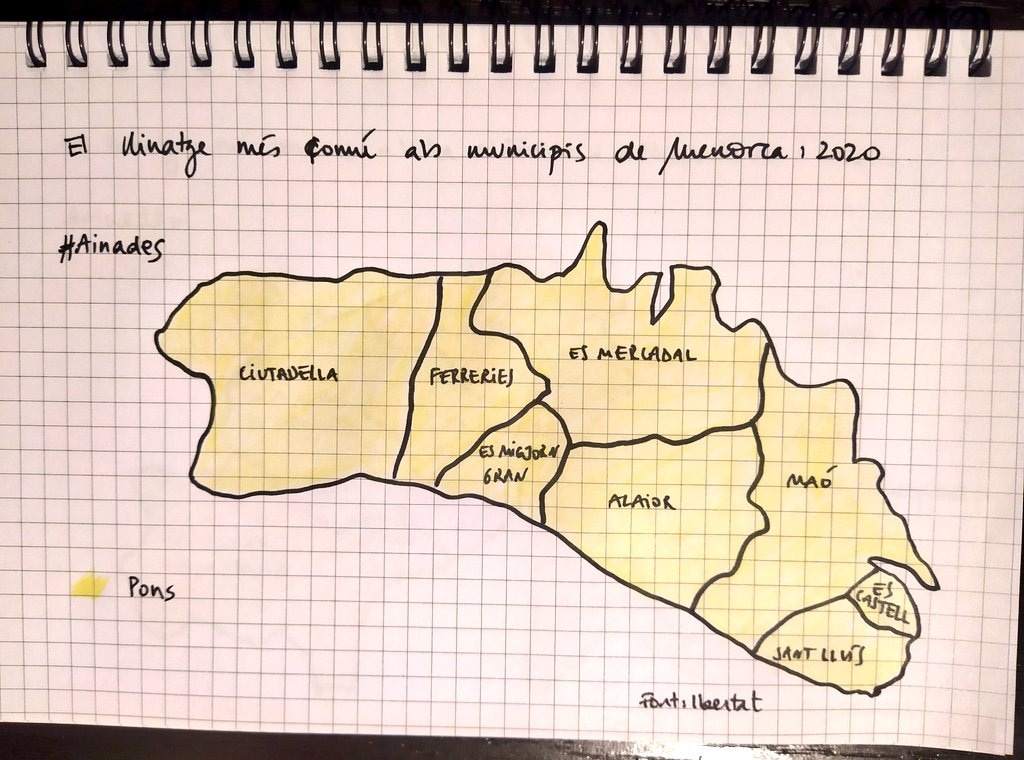 El llinatge més comú als municipis de Menorca, 2020
#Ainades
CIUTADELLA
FERRERIES
ES MERCADAL
ES MIGJORN
GRAN
ALAIOR
MAÓ
ES
CASTELL
SANT LLUÍS
Pons
Font: llibertat